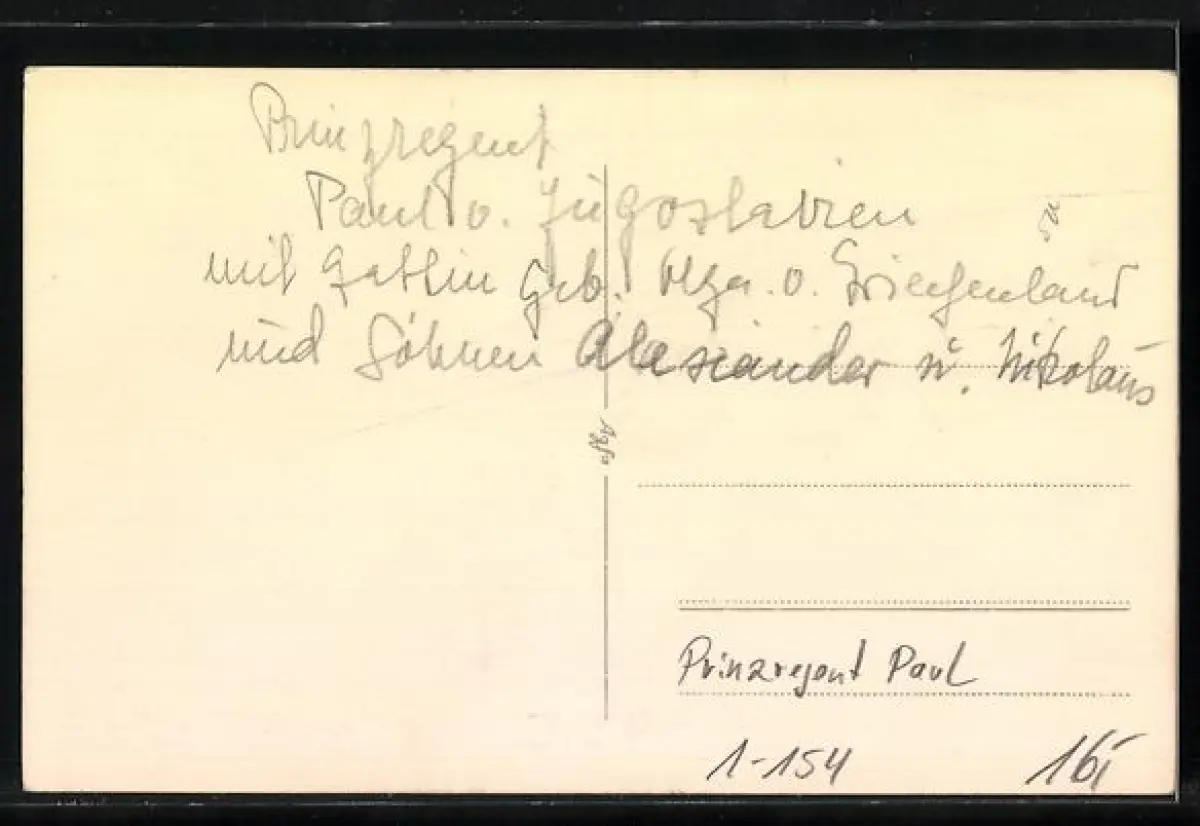 Prinzregent
Paul v. Jugoslavien
mit Gattin geb. Olga v. Griechenland
und Söhnen Alexander u. Nikolaus
Agfa
Prinzregent Paul
1-154